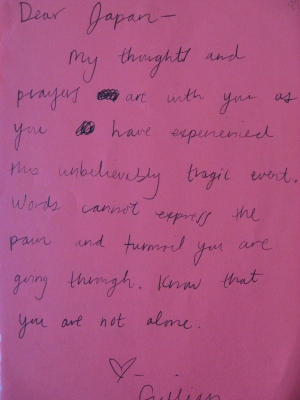 Dear Japan—
My thoughts and
prayers are with you as
you have experienced
this unbelievably tragic event.
Words cannot express the
pain and turmoil you are
going through. Know that
you are not alone.
♡-